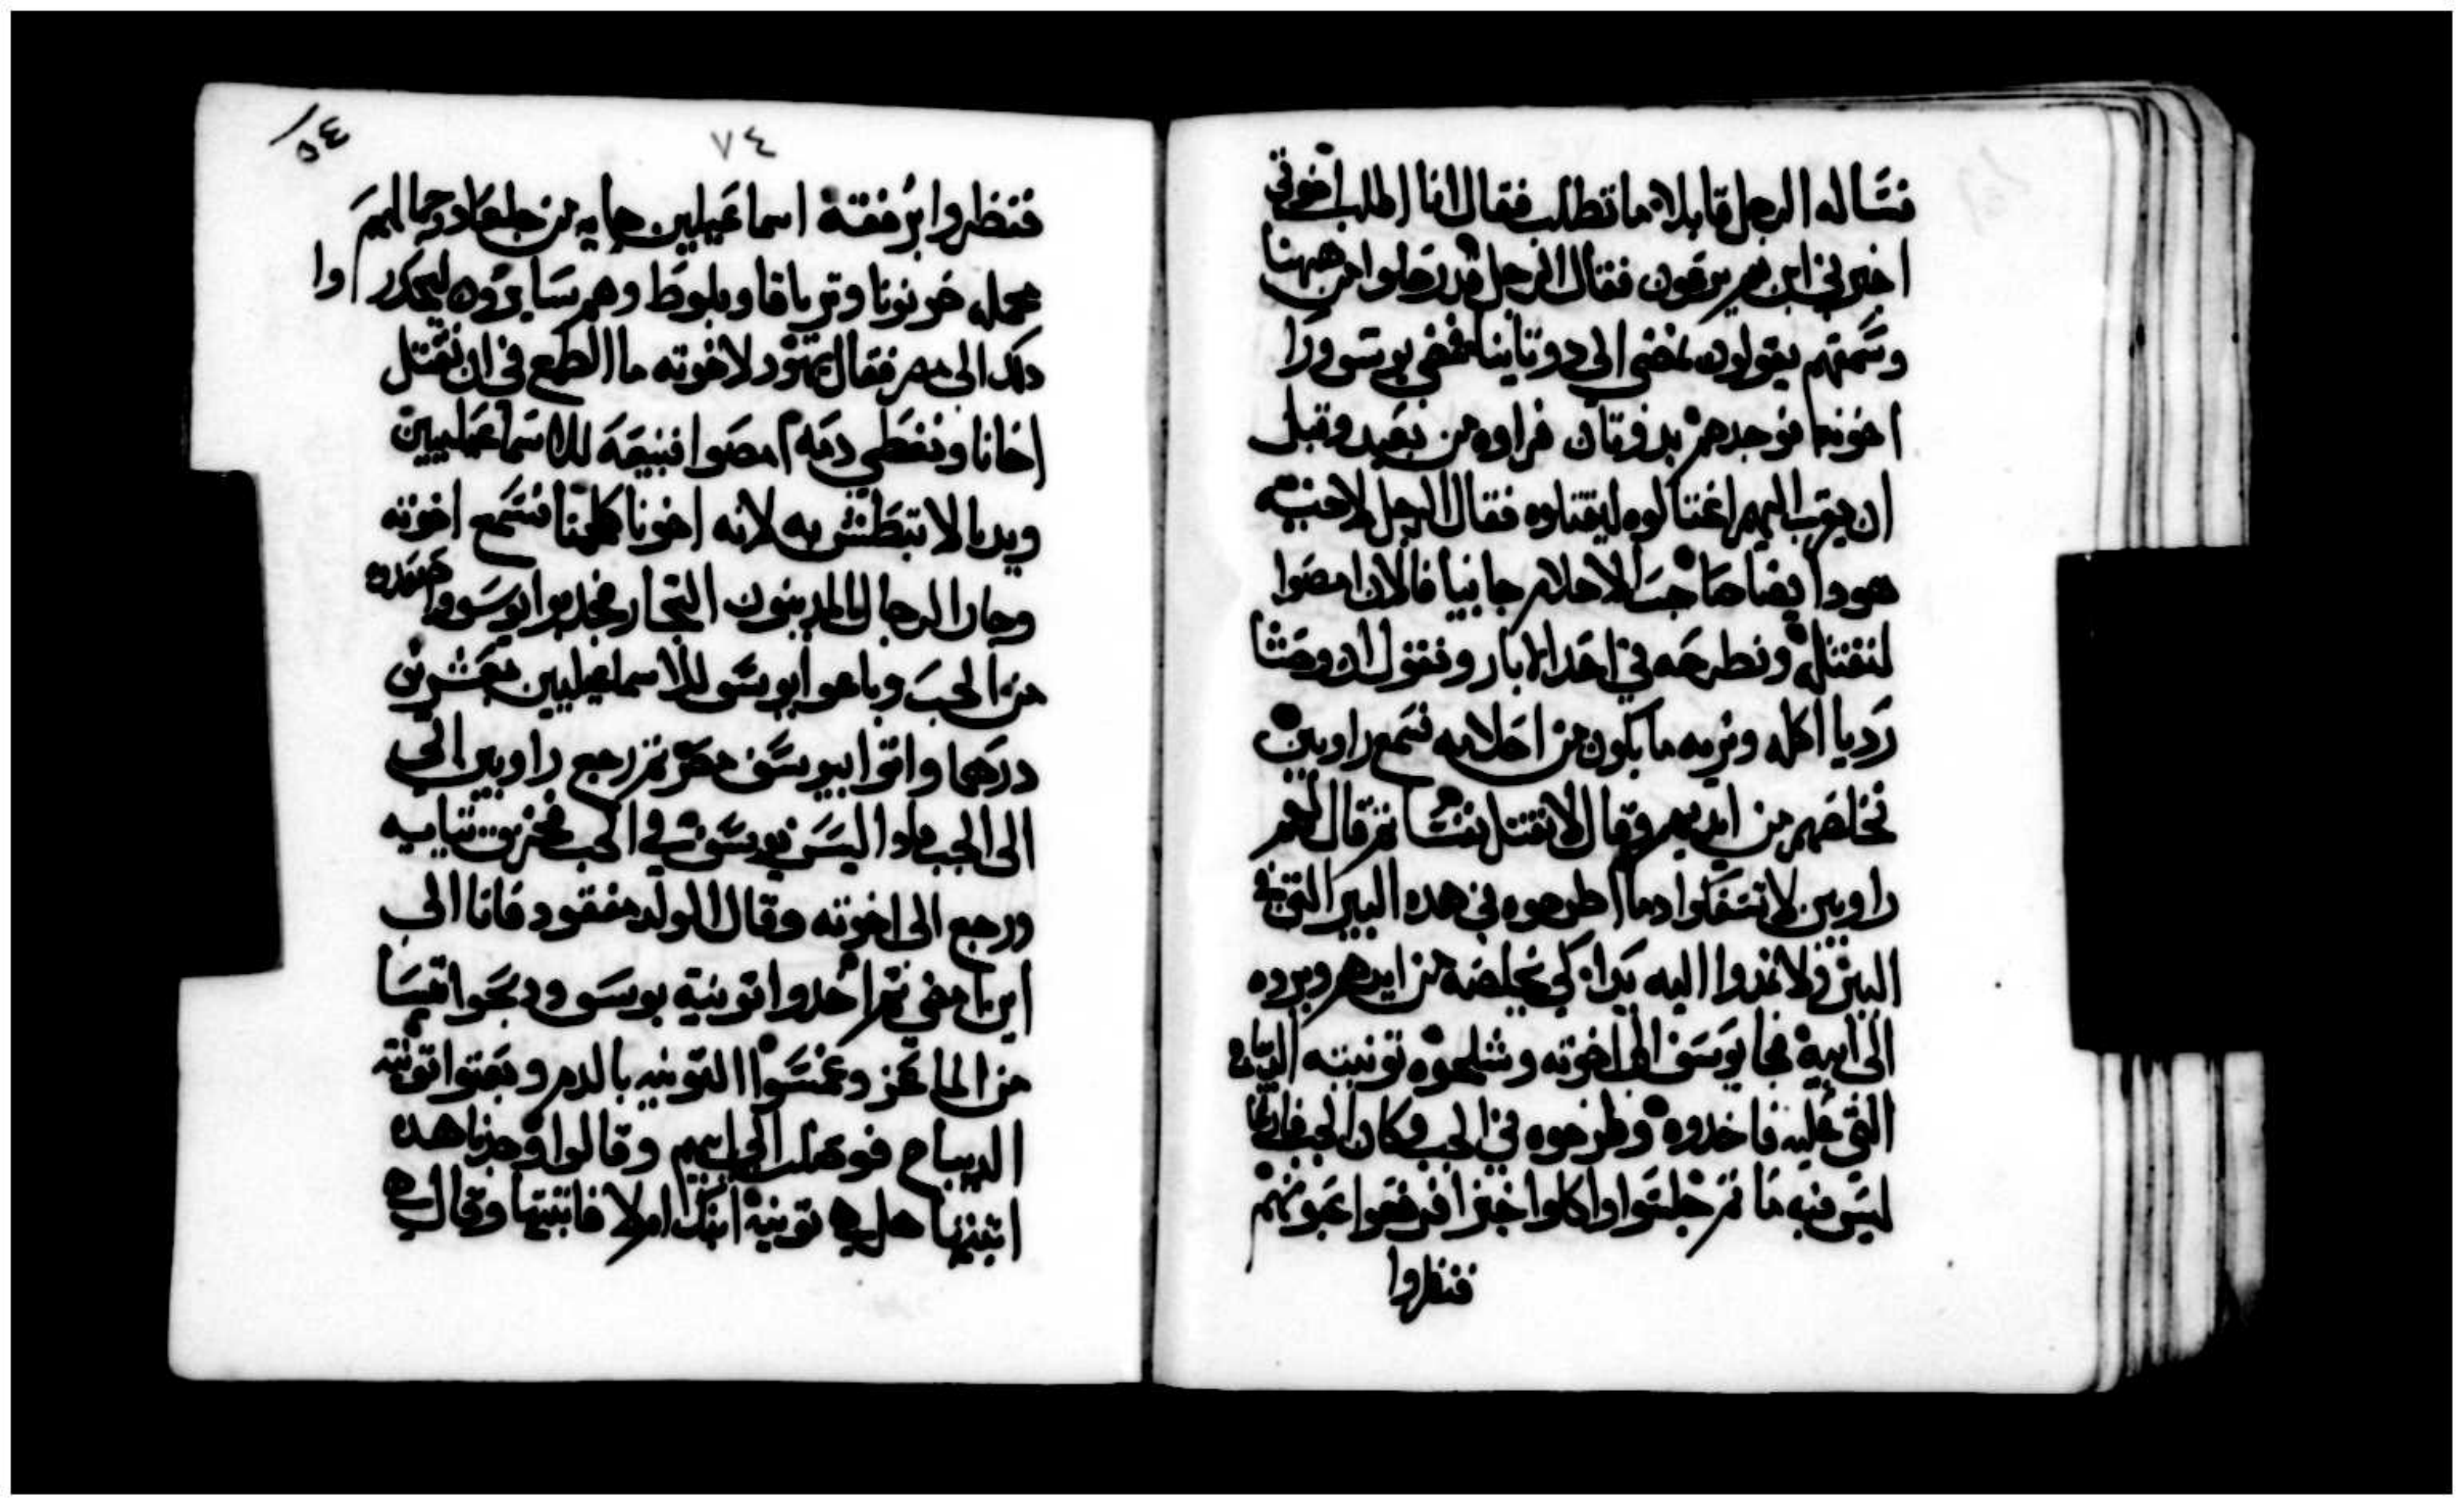 فتساله الرجل قايلا ما تطلب فقال انا اطلب اخوتي
اخبرني اين هم يرعون فقال الرجل قد رحلوا من ههنا
وسمعتهم يقولون نمضي الى دوتاين فمضي يوسف ورا
اخوته فوجدهم بدوتان فراوه من بعيد وقبل
ان يقرب اليهم اغتالوه ليقتلوه فقال الرجل لاخيه
هودا ايضا صاحب الاحلام جا فالان امضوا
لنقتله ونطرحه في احد الابار ونقول ان وحشا
رديا اكله ونريه ما يكون من احلامه فسمع راوبين
نخلصهم من ايديهم وقال لا نقتل نفسا ثم قال لهم
راوبين لا تسفكوا دما اطرحوه في هده البير التي في
البر ولا تمدوا اليه يدا كي يخلصه من ايدهم ويرده
الى ابيه فجا يوسف الى اخوته وشلحوه تونيته
التي عليه فاخدوه وطرحوه في الجب وكان الجب فارغا
ليس فيه ما ثم جلسوا واكلوا خبزا فرفعوا عيونهم
فنظروا
٧٤
٥٤
فنظروا برفقة اسماعيليين جايه من جلعاد وجمالهم
محمله خرنوبا وترياقا وبلوطا وهم سايرون ليحدروا
دلك الى مصر فقال يهود لاخوته ما الطمع في ان نقتل
اخانا ونغطي دمه امضوا فنبيعه للاسماعيليين
ويدنا لا تبطش به لانه اخونا لحمنا فسمع اخوته
وجازا الرجال المدينون التجار فجدبوا يوسف واصعدوه
من الجب وباعوا يوسف للاسماعيليين بعشرين
درهما واتوا بيوسف مصر ثم رجع راوبين الى
الى الجب فادا ليس يوسف في الجب فخرق ثيابه
ورجع الى اخوته وقال الولد مفقود فانا الى
اين امضي ثم اخدوا تونية يوسف ودبحوا تيسا
من الماعز وغمسوا التونيه بالدم وبعتوا تونيته
الديباج فوصلت الى ابيهم وقالوا وجدنا هده
اتبتها هل هي تونية ابنك ام لا فاتبتها وقال هي